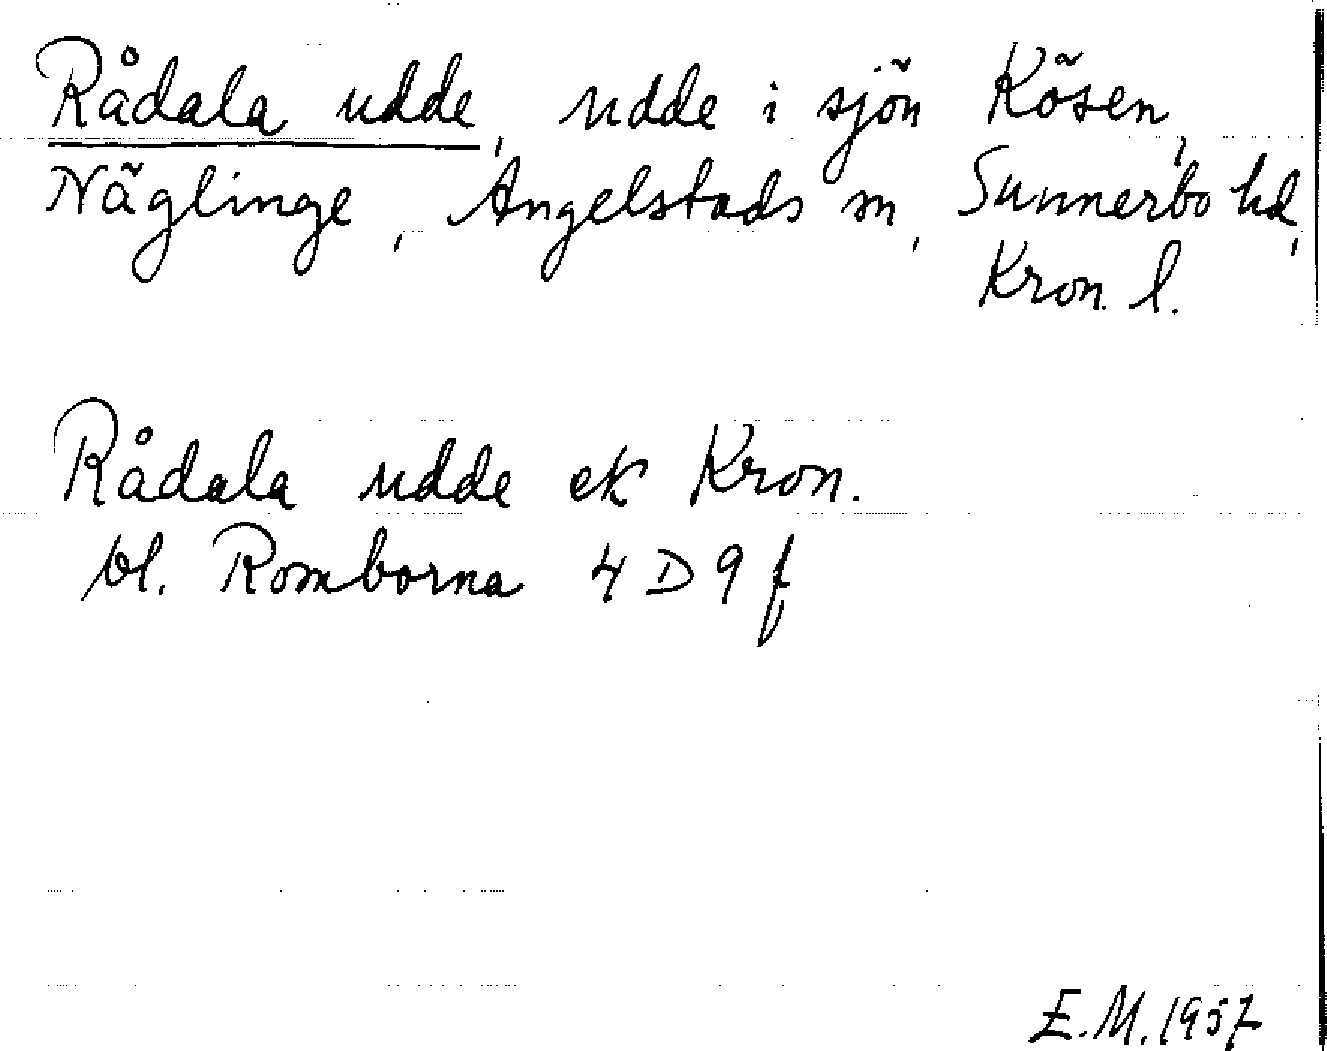 Rådala udde, udde i sjön Kösen,
Näglinge, Angelstads sn, Sunnerbo hd,
Kron. l.
Rådala udde ek Kron.
bl. Romborna 4 D 9 f
E.M. 1957